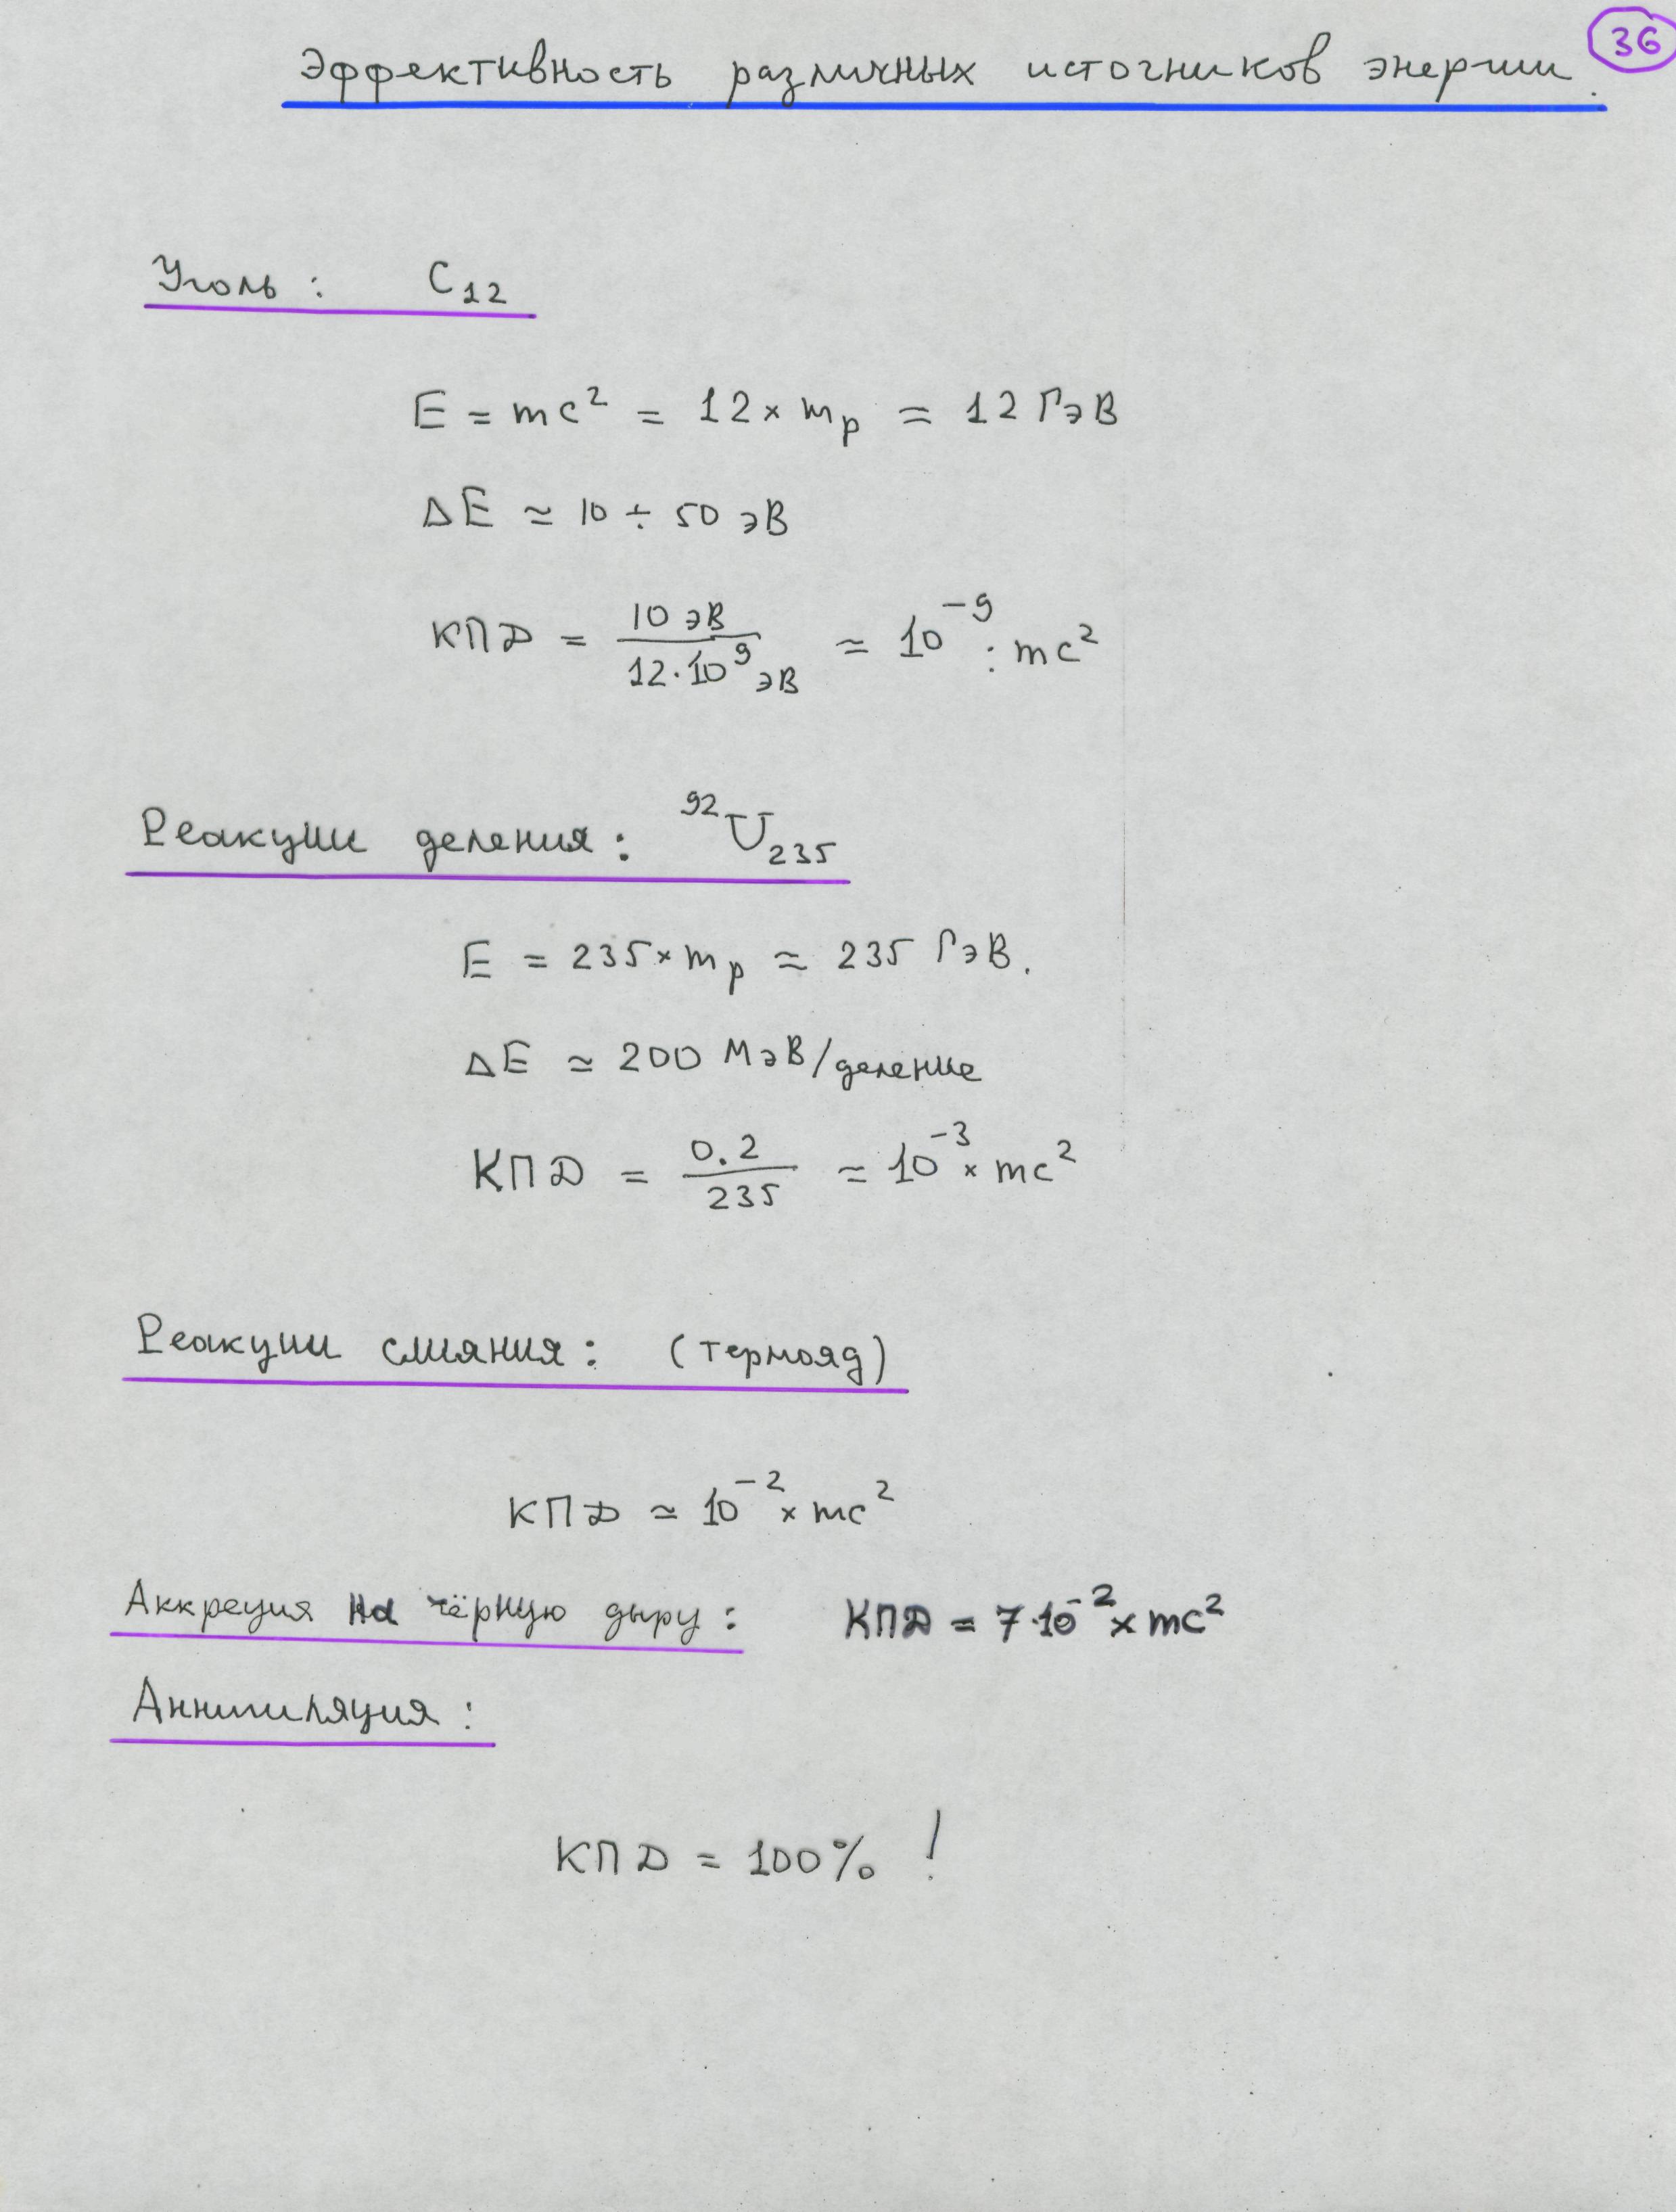 36
Эффективность различных источников энергии.
Уголь: C₁₂
E = mc² = 12 × mₚ ≈ 12 ГэВ
ΔE ≃ 10 ÷ 50 эВ
КПД = 10 эВ / 12·10⁹ эВ ≃ 10⁻⁹ : mc²
Реакции деления: ⁹²U₂₃₅
E = 235 × mₚ ≈ 235 ГэВ.
ΔE ≃ 200 МэВ/деление
КПД = 0.2 / 235 ≃ 10⁻³ × mc²
Реакции слияния: (термояд)
КПД ≃ 10⁻² × mc²
Аккреция на чёрную дыру: КПД = 7·10⁻² × mc²
Аннигиляция:
КПД = 100% !